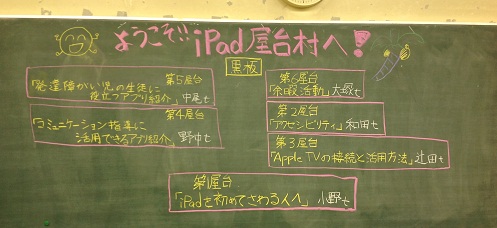 ようこそ!! iPad屋台村へ!
黒板
第5屋台
「発達障がい児の生徒に
役立つアプリ紹介」中尾七
第4屋台
「コミュニケーション指導に
活用できるアプリ紹介」野中七
第6屋台
「余暇活動」大塚七
第2屋台
「アクセシビリティ」和田七
第3屋台
「Apple TVの接続と活用方法」辻田七
第1屋台
「iPadを初めてさわる人へ」小野七